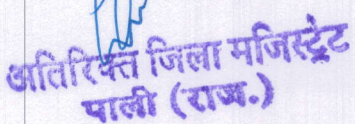 अतिरिक्त जिला मजिस्ट्रेट
पाली (राज.)